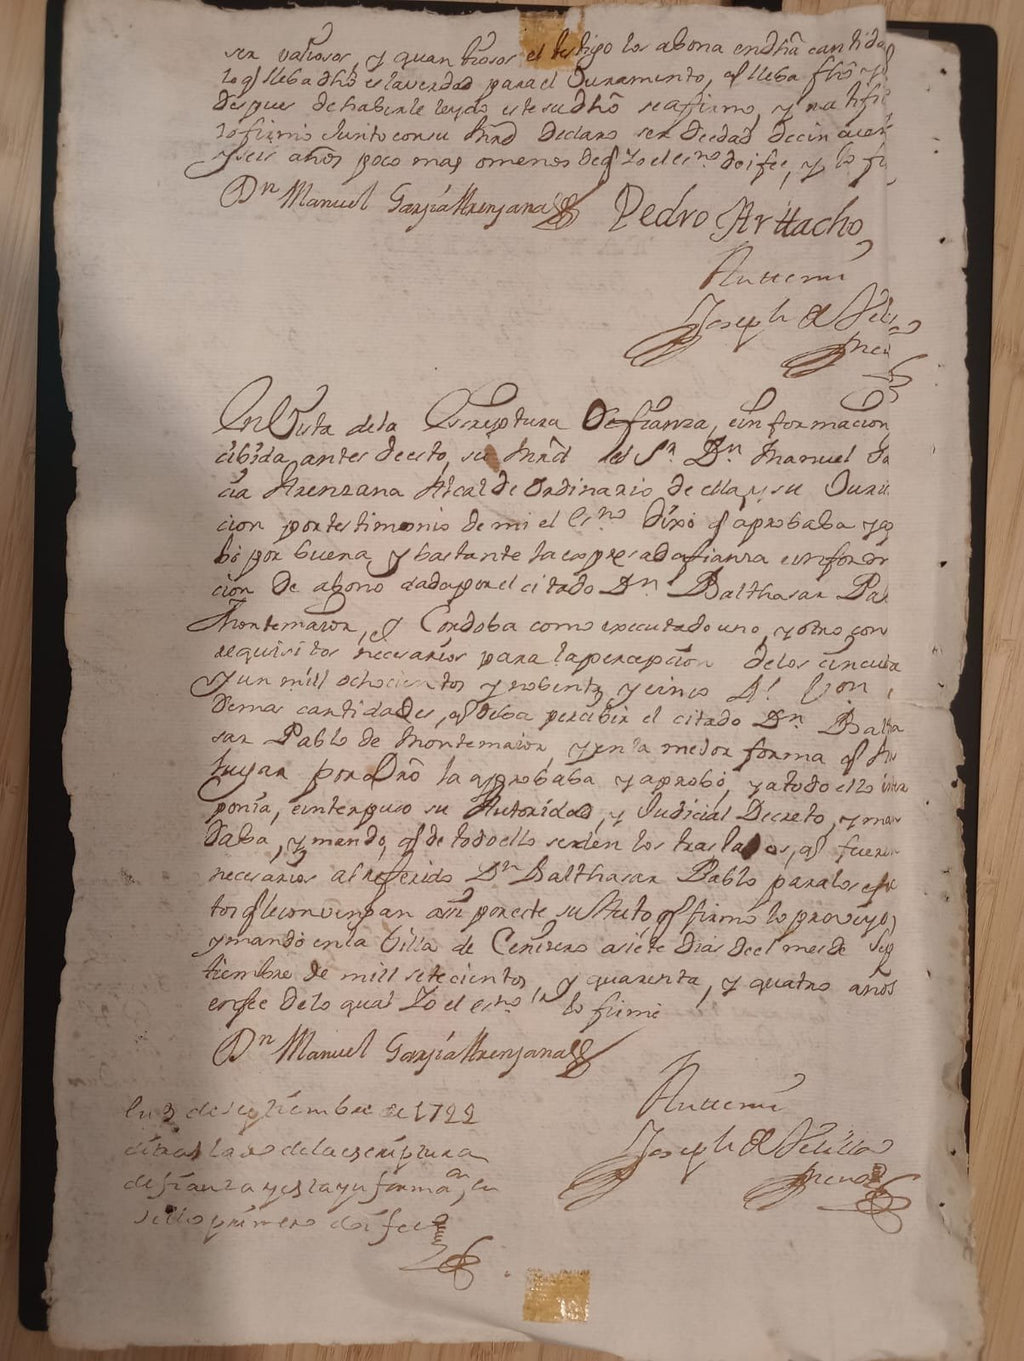 ser valiosos, y quantiosos el testigo los abona en dha cantida
lo q lleba dho es la verdad para el Juramento, q lleba fho y
despues de haberle leydo este su dho se afirmo, y ratifi
lo firmo Junto con su Mrd declaro ser de edad de cincuen
y seis años poco mas o menos de q Yo el esno doi fee, y lo fi
Dn Manuel Garzia Arenzana Pedro Arttacho
Antemi
Joseph de Velilla
En Vista de la Escriptura de fianza, e informacion
cibida antes de esto, su Mrd del Sr Dn Manuel Ga
cia Arenzana Alcalde Ordinario de ella y su Juris
cion por testimonio de mi el Esno Dixo q aprobaba y ap
bó por buena, y bastante la expresada fianza e informa
cion de abono dada por el citado Dn Balthasar Pab
Montemaior, y Cordoba como executado uno, y otro con
requisitos necesarios para la percepcion de los cincuen
y un mill ochocientos y nobenta y cinco Rs Von
demas cantidades, q deba percibir el citado Dn Baltha
sar Pablo de Montemaior, y en la mejor forma q ha
lugar por dro la aprobaba y aprobó, y a todo ello inter
ponia, e interpuso su Autoridad, y Judicial Decreto, y man
daba, y mando, q de todo ello se den los traslados, q fueren
necesarios al referido Dn Balthasar Pablo para los efec
tos q le convengan asi por este su Auto q firmó lo proveyo,
y mandó en la Villa de Cenizero a siete dias de el mes de Sep
tiembre de mill setecientos, y quarenta, y quatro años
en fee de lo qual Yo el esno lo firmé
Dn Manuel Garzia Arenzana
Antemi
Joseph de Velilla
de septiembre de 1744
di traslado de la escriptura
de fianza y esta ynformaon, en
sello primero doi fee